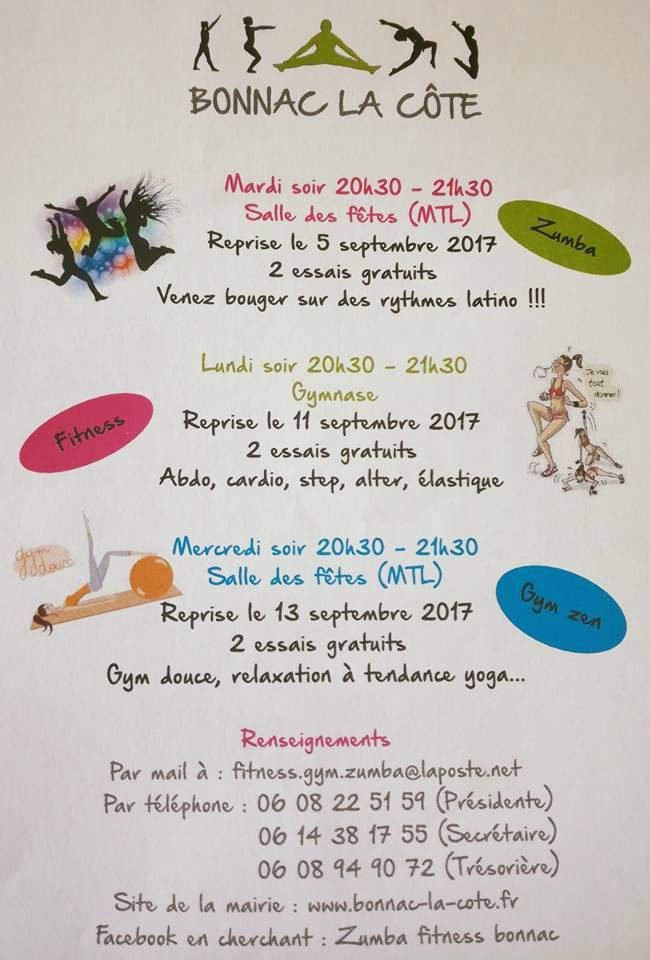 BONNAC LA CÔTE
Mardi soir 20h30 - 21h30
Salle des fêtes (MTL)
Reprise le 5 septembre 2017
2 essais gratuits
Venez bouger sur des rythmes latino !!!
Zumba
Lundi soir 20h30 - 21h30
Gymnase
Reprise le 11 septembre 2017
2 essais gratuits
Abdo, cardio, step, alter, élastique
Fitness
Je vais
tout
donner!
Mercredi soir 20h30 - 21h30
Salle des fêtes (MTL)
Reprise le 13 septembre 2017
2 essais gratuits
Gym douce, relaxation à tendance yoga...
gym
douce
Gym zen
Renseignements
Par mail à : fitness.gym.zumba@laposte.net
Par téléphone : 06 08 22 51 59 (Présidente)
06 14 38 17 55 (Secrétaire)
06 08 94 90 72 (Trésorière)
Site de la mairie : www.bonnac-la-cote.fr
Facebook en cherchant : Zumba fitness bonnac